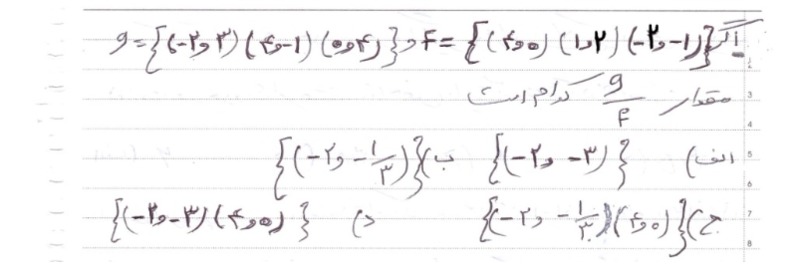 اگر f = {(۴و۰) (۱و۲) (-۲و-۱)} و g = {(-۲و۳) (۴و-۱) (۰و۴)}
مقدار g/f کدام است
الف) {(-۲و -۳)} ب) {(-۲و -۱/۳)}
ج) {(-۲و -۱/۳) (۴و۰)} د) {(-۲و-۳) (۴و۰)}